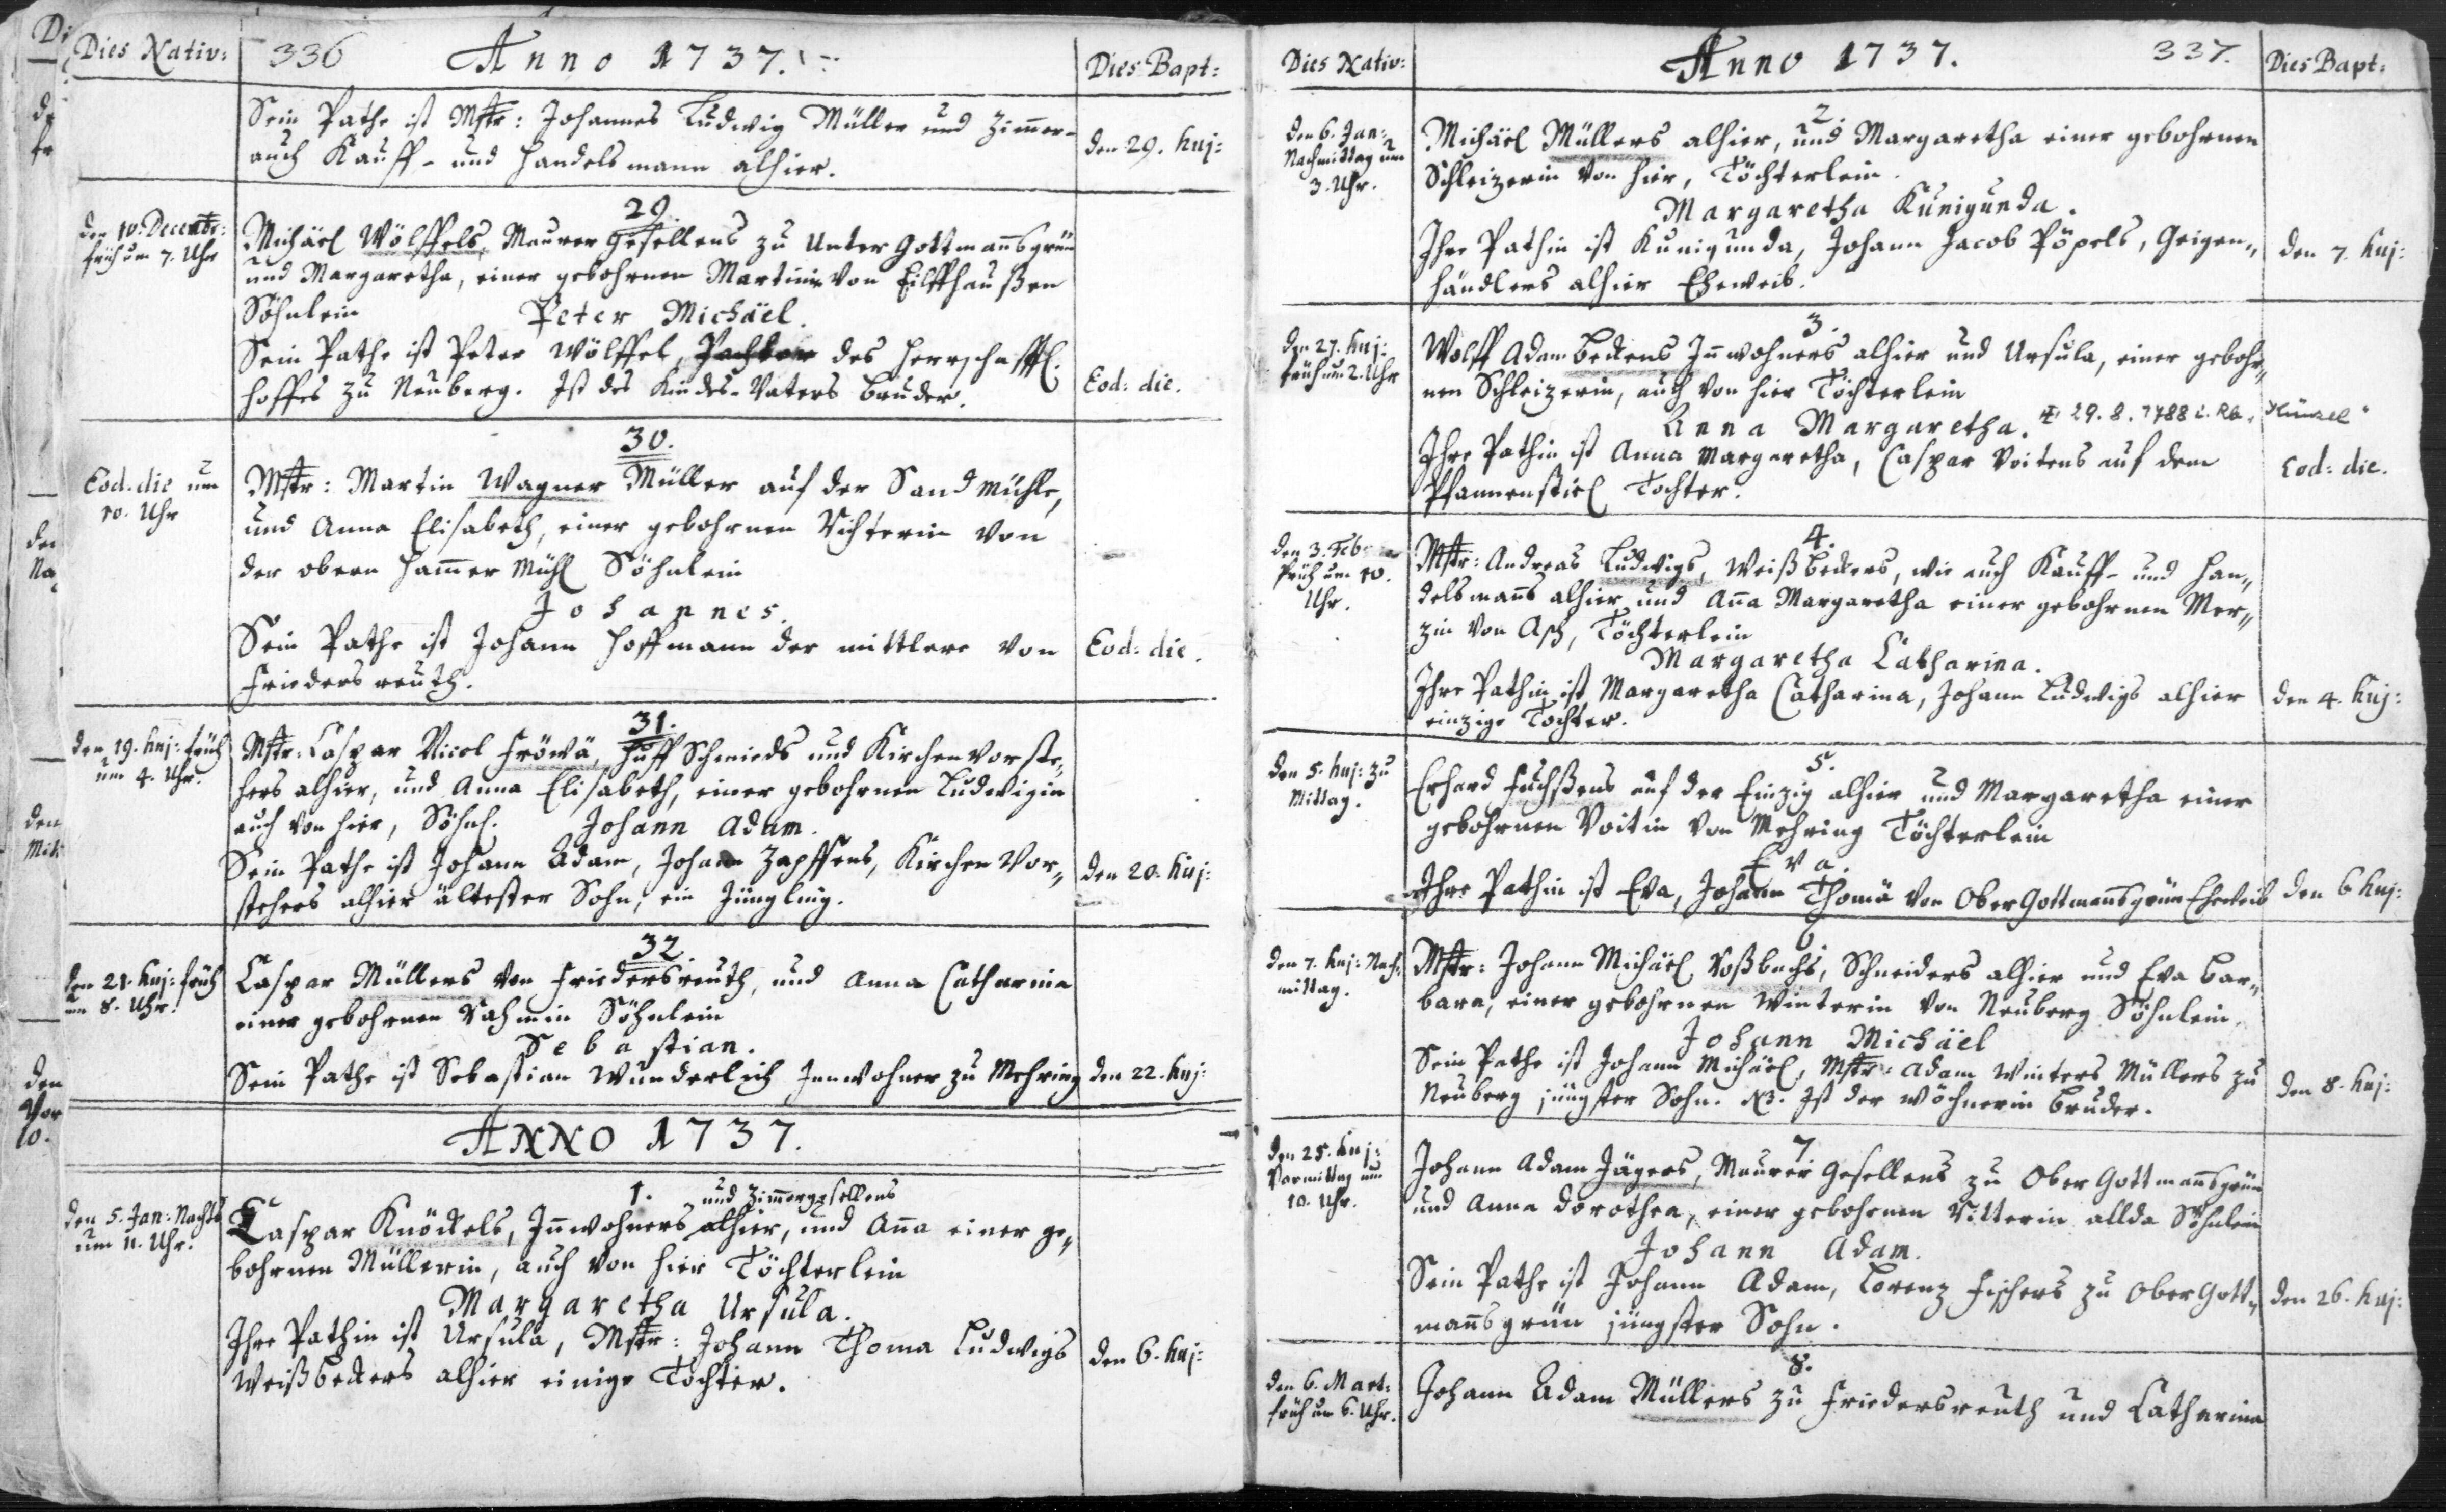 Dies Nativ:
336 Anno 1737.
Dies Bapt:
Sein Pathe ist Mstr: Johannes Ludwig Müller und Zimer-
auch Kauff- und Handelsmann alhier.
den 29. huj:
29.
den 10. Decembr:
früh um 7. Uhr
Michäel Wölffels, Maurer Gesellens zu Unter Gottmansgrün
und Margaretha, einer gebohrnen Martinin von Eilffhaußen
Söhnlein Peter Michäel.
Sein Pathe ist Peter Wölffel, Pachter des Herrschafftl.
Hoffes zu Neuberg. Ist des Kindes-Vaters Bruder.
Eod: die.
30.
Eod: die um
10. Uhr
Mstr: Martin Wagner Müller auf der Sandmühle,
und Anna Elisabeth, einer gebohrnen Richterin von
der obern Hamer Mühl Söhnlein
Johannes.
Sein Pathe ist Johann Hoffmann der mittlere von
Friedersreuth.
Eod: die.
31.
den 19. huj: früh
um 4. Uhr.
Mstr: Caspar Nicol Fröwä, Huff Schmieds und Kirchenvorste„
hers alhier, und Anna Elisabeth, einer gebohrnen Ludwigin
auch von hier, Söhnl. Johann Adam.
Sein Pathe ist Johann Adam, Johann Zapffens, Kirchen Vor„
stehers alhier ältester Sohn, ein Jüngling.
den 20. huj:
32.
den 21. huj: früh
um 8. Uhr.
Caspar Müllers von Friedersreuth, und Anna Catharina
einer gebohrnen Rahmin Söhnlein
Sebastian.
Sein Pathe ist Sebastian Wunderlich Innwohner zu Mehring
den 22. huj:
ANNO 1737.
1. und Zimergesellens
den 5. Jan: Nachts
um 11. Uhr.
Caspar Knöckels, Inwohners alhier, und Ana einer ge„
bohrnen Müllerin, auch von hier Töchterlein
Margaretha Ursula.
Ihre Pathin ist Ursula, Mstr: Johann Thoma Ludwigs
Weißbeckers alhier einige Tochter.
den 6. huj:
Dies Nativ:
Anno 1737. 337.
Dies Bapt:
2.
den 6. Jan:
Nachmittag um
3. Uhr.
Michäel Müllers alhier, und Margaretha einer gebohrnen
Schleizerin von hier, Töchterlein.
Margaretha Kunigunda.
Ihre Pathin ist Kunigunda, Johann Jacob Pöpels, Geigen„
händlers alhier Eheweib.
den 7. huj:
3.
den 27. huj:
früh um 2. Uhr
Wolff Adam Beckens Inwohners alhier und Ursula, einer gebohr„
nen Schleizerin, auch von hier Töchterlein
Anna Margaretha. 29. 8. 1788
Ihre Pathin ist Anna Margaretha, Caspar Voitens auf dem
Pfannenstiel Tochter.
Eod: die.
4.
den 3. Feb:
früh um 10.
Uhr.
Mstr: Andreas Ludwigs, Weißbeckers, wie auch Kauff- und Han„
delsmans alhier und Ana Margaretha einer gebohrnen Mer„
zin von Asch, Töchterlein
Margaretha Catharina.
Ihre Pathin ist Margaretha Catharina, Johann Ludwigs alhier
einzige Tochter.
den 4. huj:
5.
den 5. huj: zu
Mittag.
Erhard Fuchßens auf der Einzig alhier und Margaretha einer
gebohrnen Voitin von Mehring Töchterlein
Eva.
Ihre Pathin ist Eva, Johann Thomä von Ober Gottmansgrün Eheweib
den 6 huj:
6
den 7. huj: Nach
mittag.
Mstr: Johann Michäel Roßbachs, Schneiders alhier und Eva Bar„
bara, einer gebohrnen Winterin von Neuberg Söhnlein.
Johann Michäel
Sein Pathe ist Johann Michäel, Mstr: Adam Winters Müllers zu
Neuberg jüngster Sohn. NB. Ist der Wöchnerin Bruder.
den 8. huj:
7
den 25. huj:
Vormittag um
10. Uhr.
Johann Adam Jägers, Maurer Gesellens zu Ober Gottmansgrün
und Anna Dorothea, einer gebohrnen Ritterin allda Söhnlein
Johann Adam.
Sein Pathe ist Johann Adam, Lorenz Fischers zu Ober Gott„
mansgrün jüngster Sohn.
den 26. huj:
8.
den 6. Mart:
früh um 6. Uhr.
Johann Adam Müllers zu Friedersreuth und Catharina